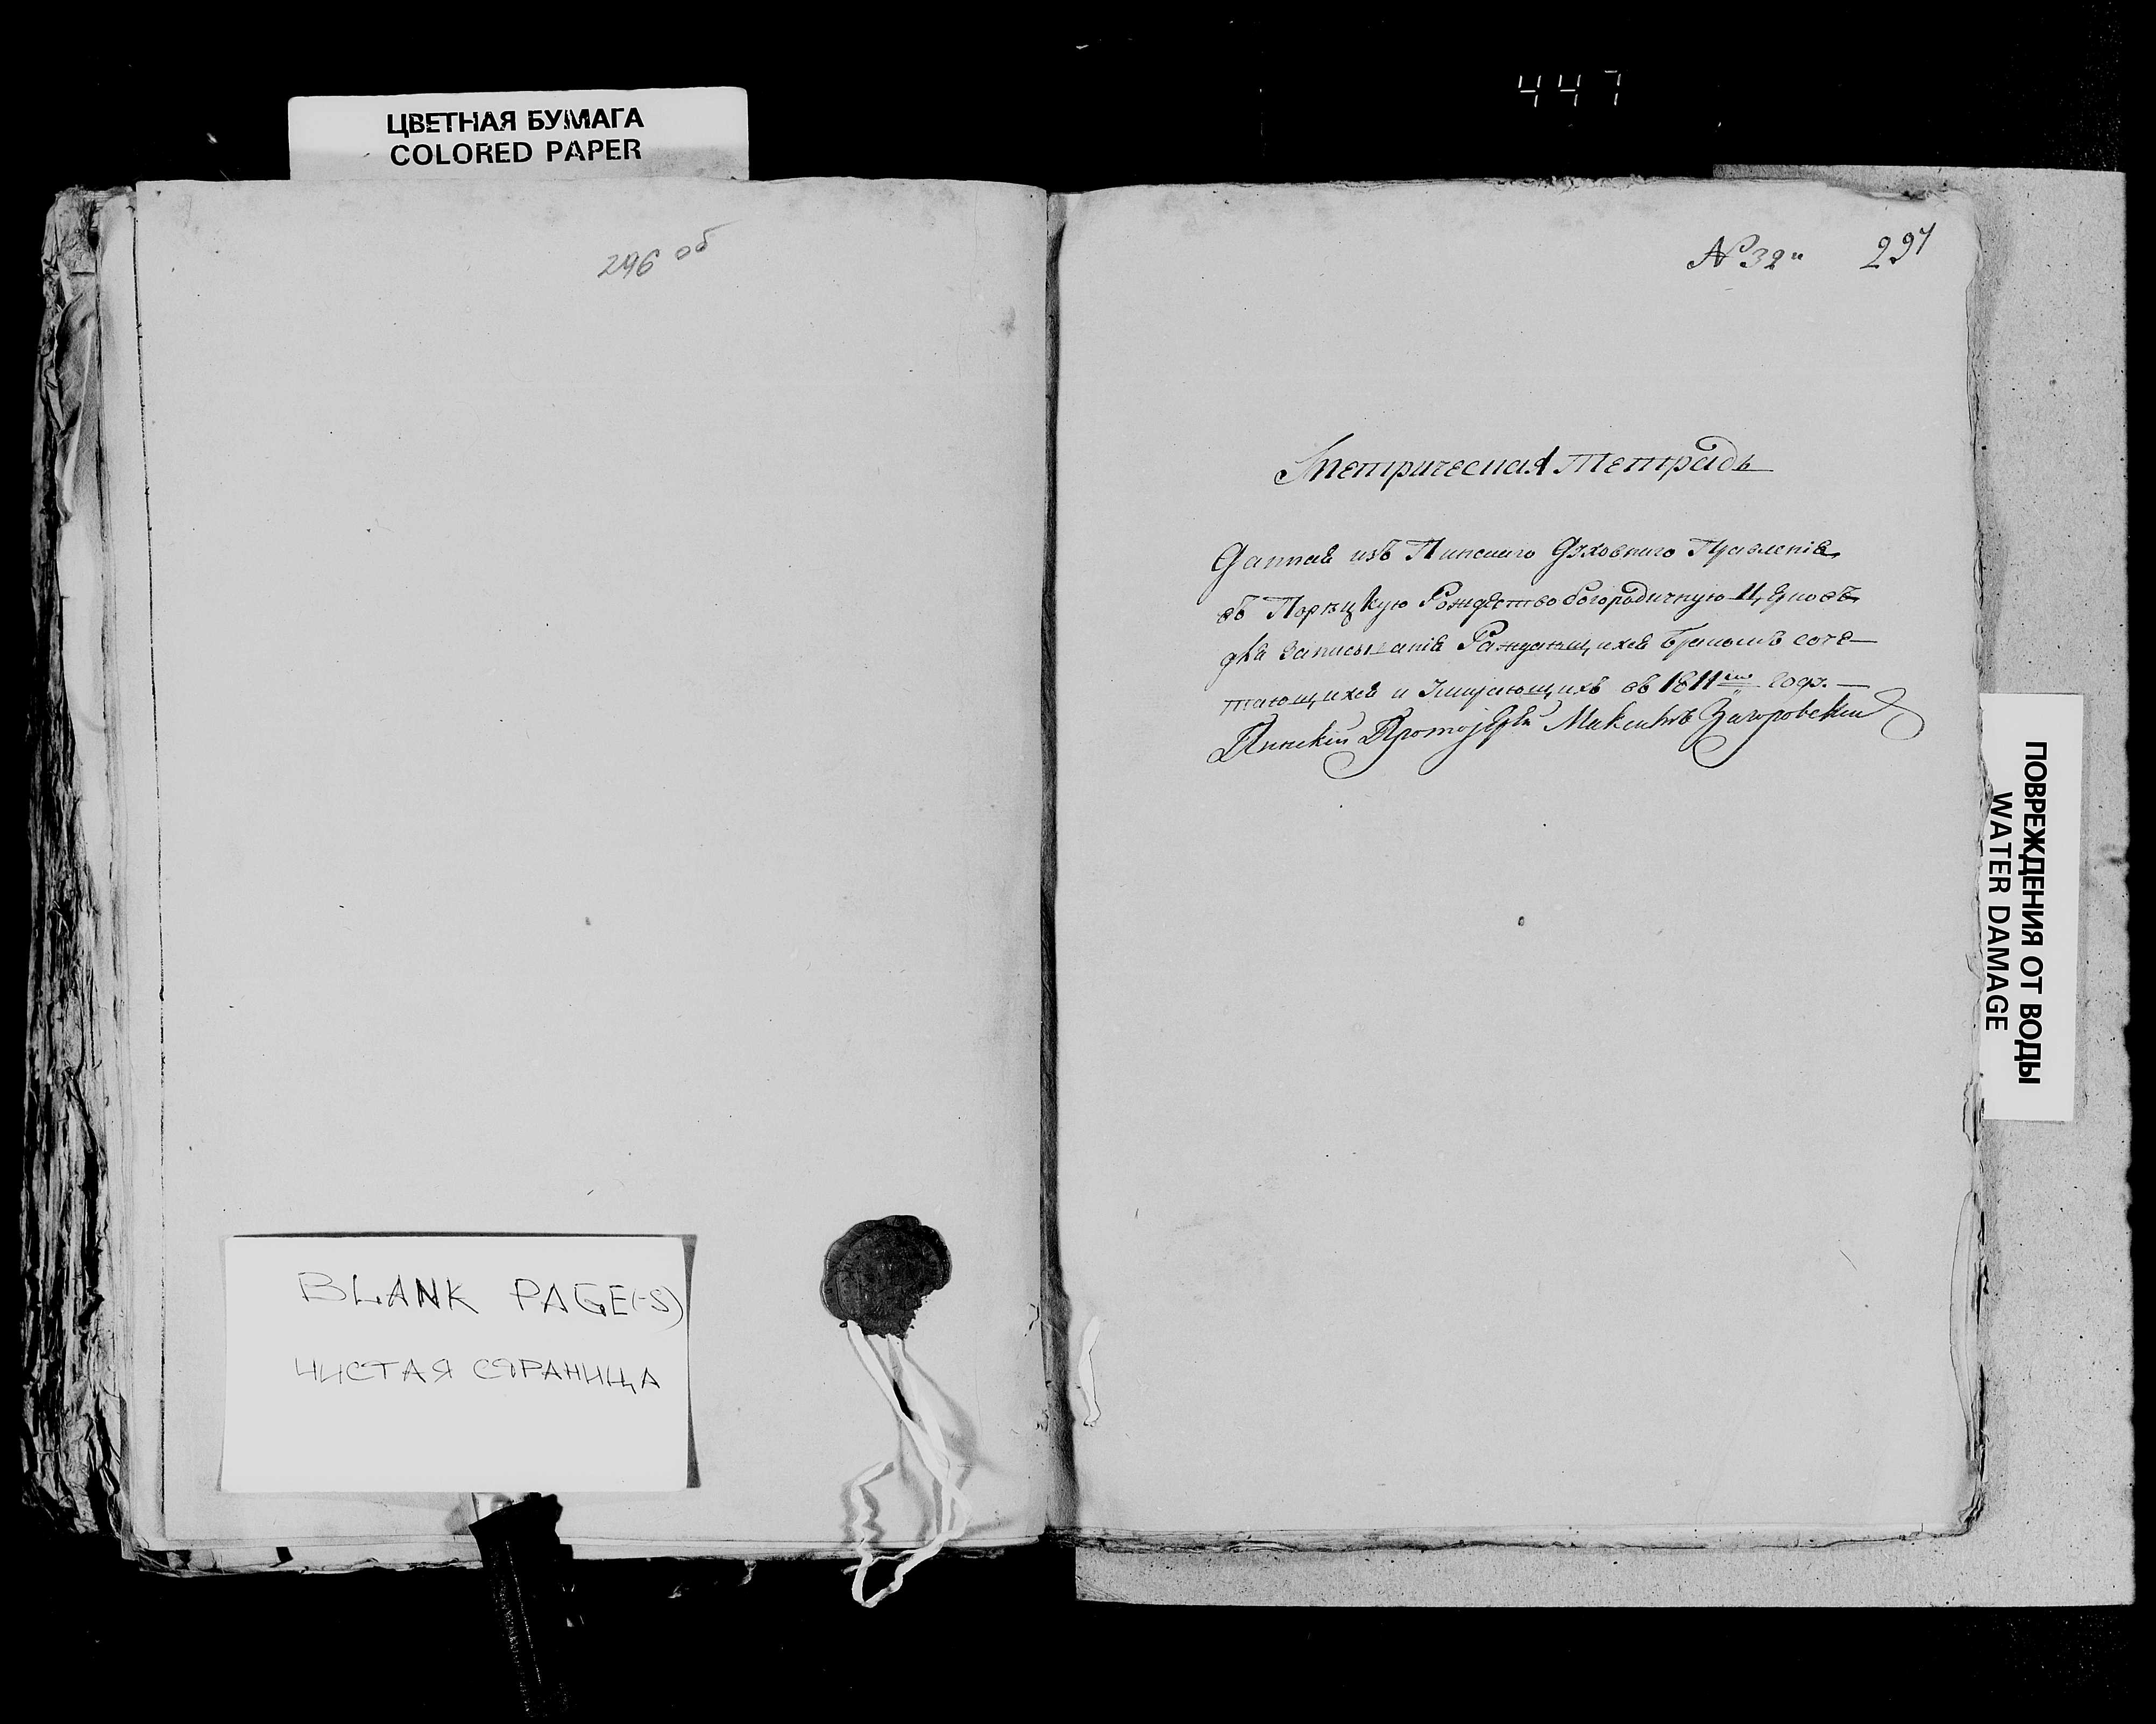 447
ЦВЕТНАЯ БУМАГА
COLORED PAPER
296 об
№ 32" 297
Метрическая тетрадь
Данная изъ Пинскаго Духовнаго Правленія
въ Порѣцкую Рождество богородичную Церковь
для записыванія Раждающихся бракомъ соче-
тающихся и Умирающихъ въ 1811мъ году. —
Пинскій Протоіерей Максимъ Загоровскій
BLANK PAGE(-S)
ЧИСТАЯ СТРАНИЦА
ПОВРЕЖДЕНИЯ ОТ ВОДЫ
WATER DAMAGE